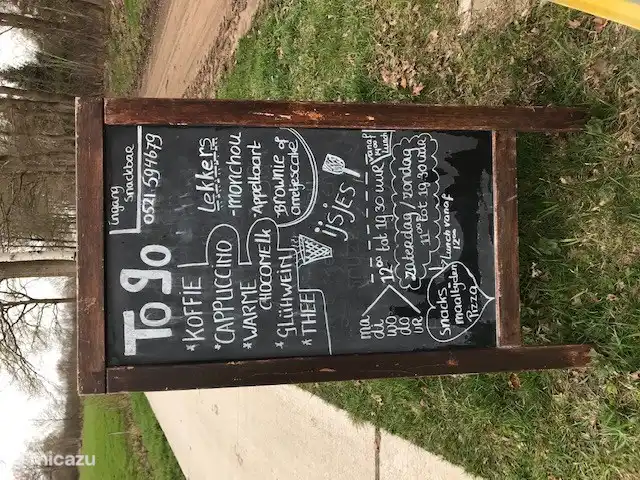 Ingang
Snackbar
0521-594679
To go
*KOFFIE
*CAPPUCCINO
*WARME
CHOCOMELK
*GLÜHWEIN
*THEE
Lekkers
-Monchou
*Appeltaart
*Brownie of
ijsjes
ma
di
wo
do
VR
12⁰⁰ tot 19³⁰ uur
vanaf
Lunch
zaterdag/zondag
11⁰⁰ tot 19³⁰ uur
Snacks
maaltijden
Pizza
Lunch vanaf
12⁰⁰
micazu